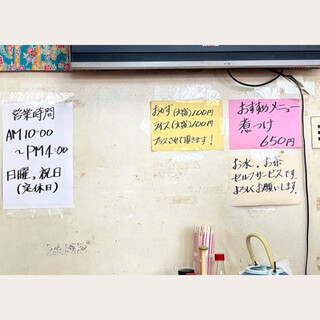 営業時間
AM10:00
〜PM4:00
日曜,祝日
(定休日)
おかず(大盛)100円
ライス(大盛)100円
プラスさせて頂きます!
おすすめメニュー
煮つけ
650円
お水.お茶
セルフサービスです.
よろしくお願いします.